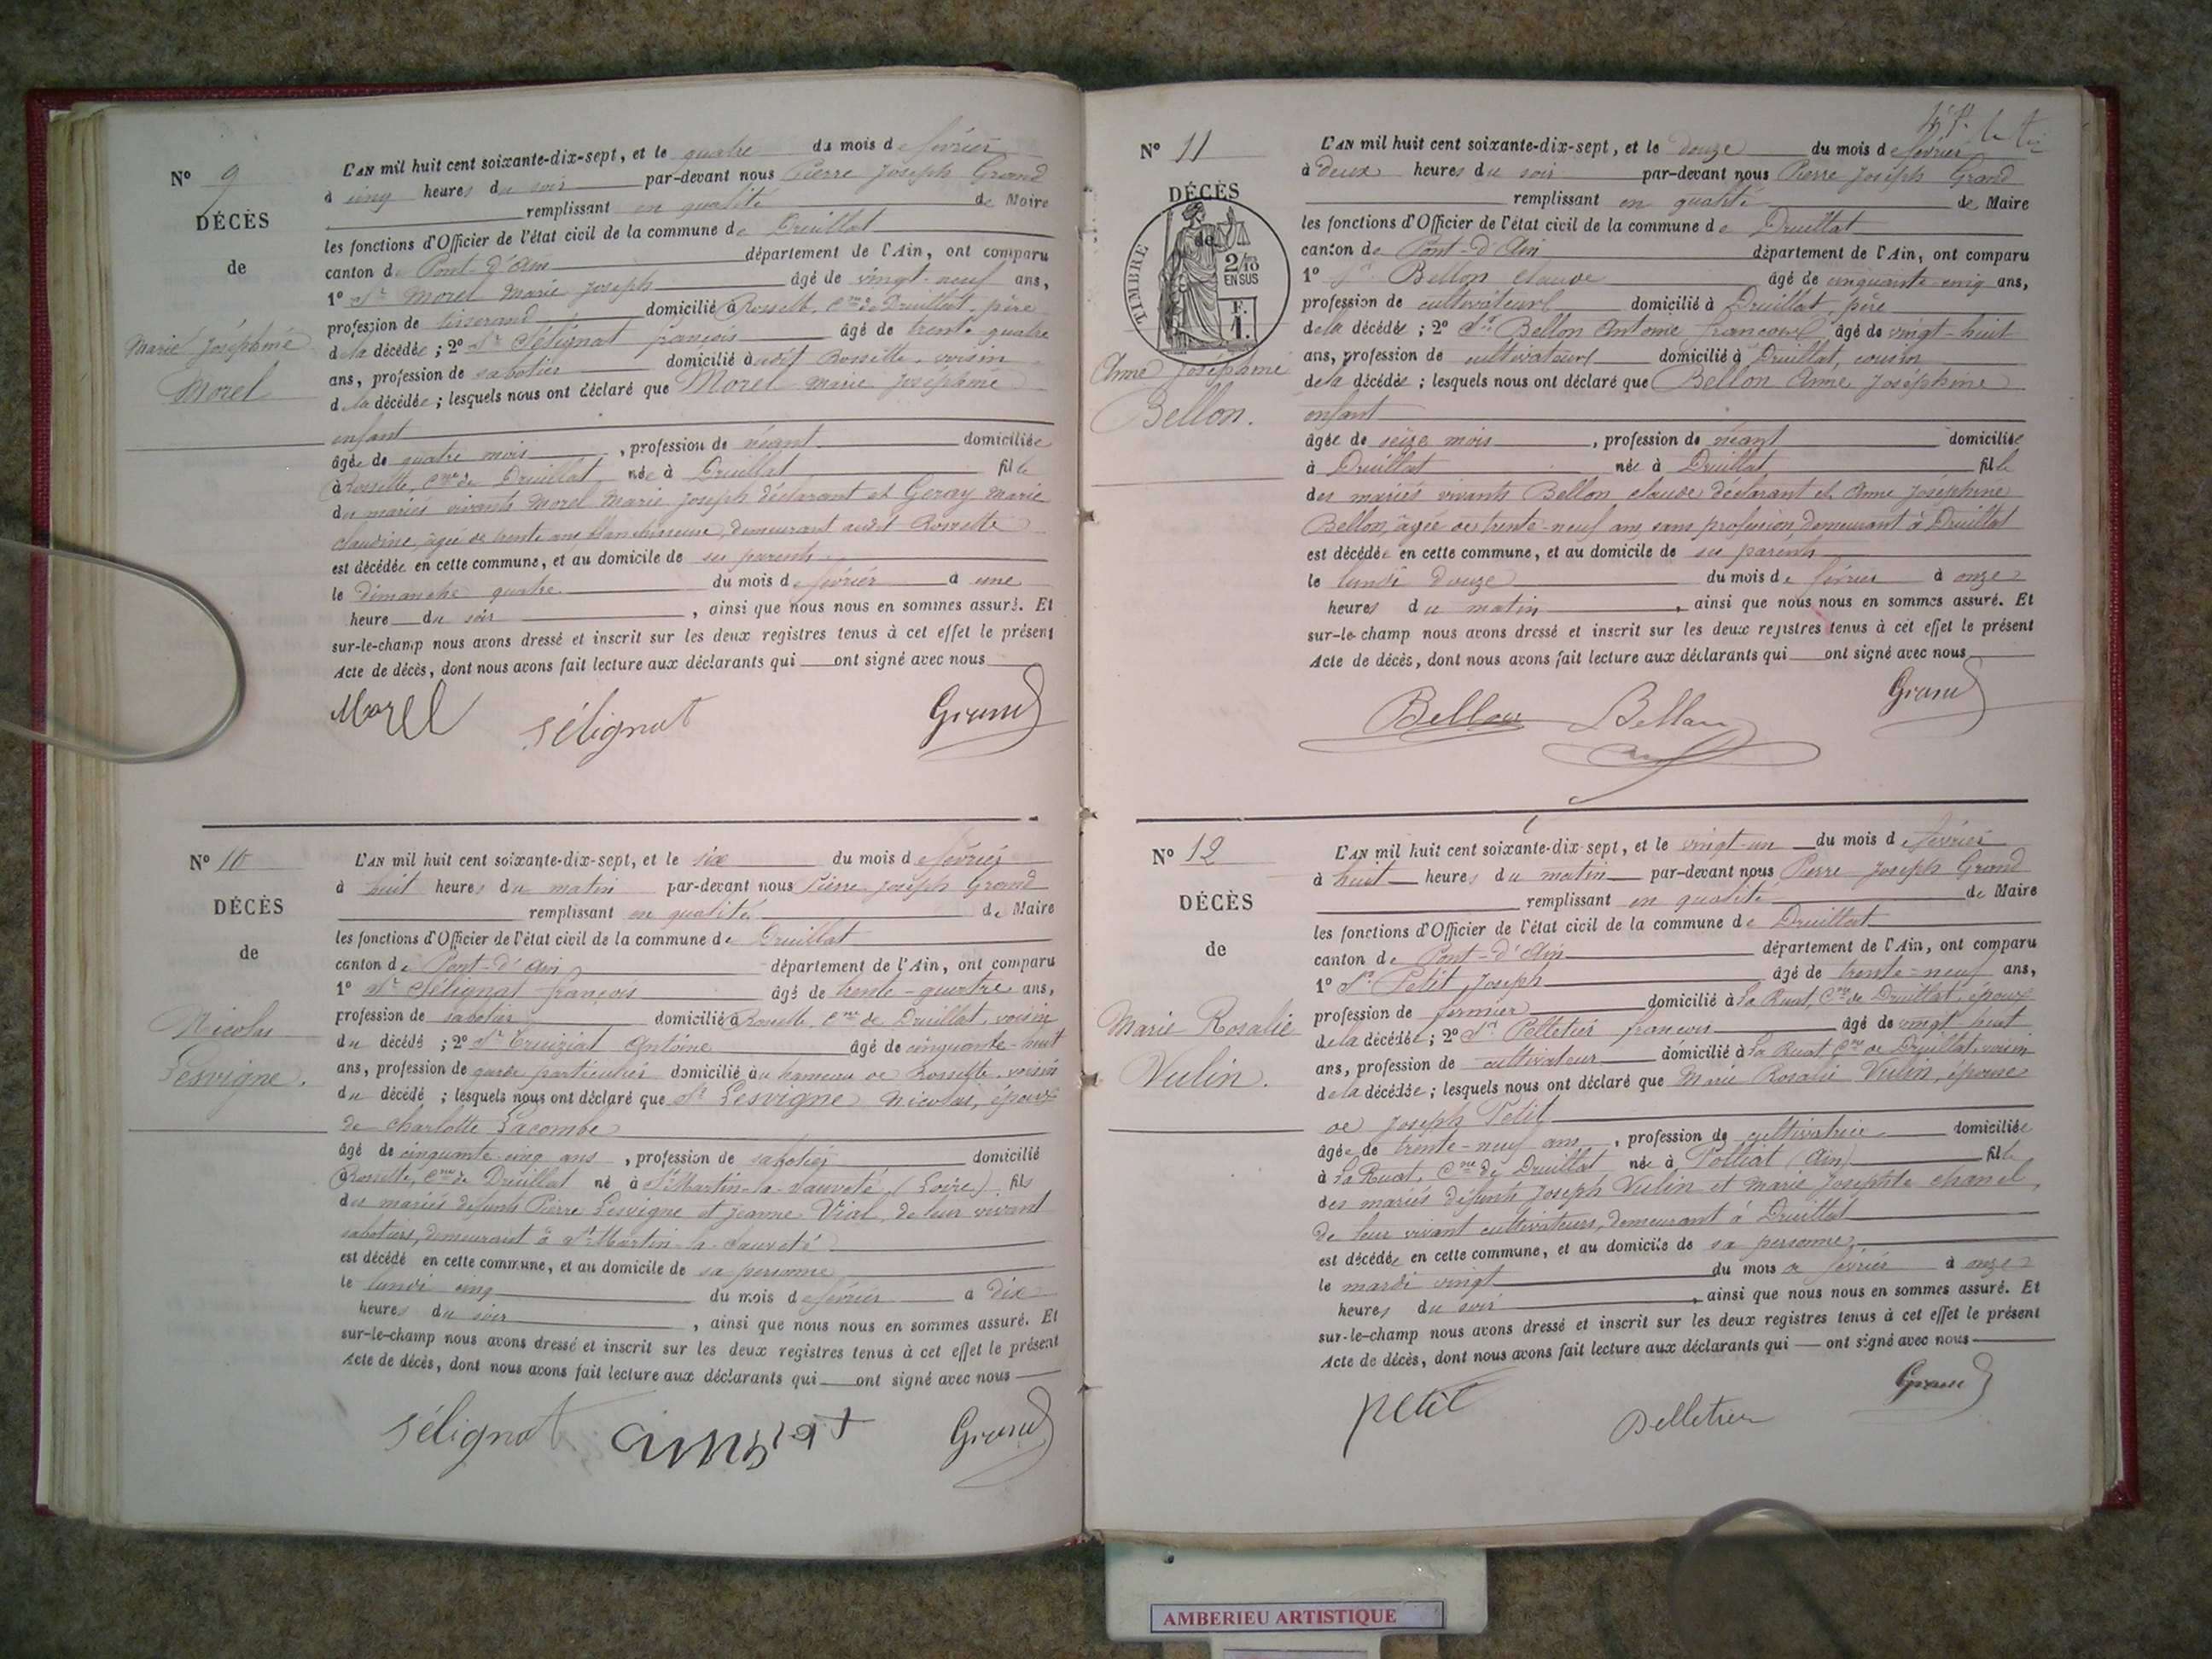 N° 9
DÉCÈS
de
Marie Joséphine
Morel
L'AN mil huit cent soixante-dix-sept, et le quatre du mois de février
à cinq heures du soir par-devant nous Pierre Joseph Grand
remplissant en qualité de Maire
les fonctions d'Officier de l'état civil de la commune de Druillat
canton de Pont-d'Ain département de l'Ain, ont comparu
1° Sr Morel Marie Joseph âgé de vingt-neuf ans,
profession de tisserand domicilié à Rossette, Cne de Druillat, père
de la décédée; 2° Sr Sélignat françois âgé de trente quatre
ans, profession de sabotier domicilié à udit Rossette, voisin
de la décédée; lesquels nous ont déclaré que Morel Marie Joséphine
enfant
âgée de quatre mois, profession de néant domiciliée
à Rossette, Cne de Druillat née à Druillat fille
des mariés vivants Morel Marie Joseph déclarant et Geray Marie
claudine, âgée de trente ans, blanchisseuse, demeurant audit Rossette
est décédée en cette commune, et au domicile de ses parents
le dimanche quatre du mois de février à une
heure du soir, ainsi que nous nous en sommes assuré. Et
sur-le-champ nous avons dressé et inscrit sur les deux registres tenus à cet effet le présent
Acte de décès, dont nous avons fait lecture aux déclarants qui ont signé avec nous
Morel Sélignat Grand
N° 10
DÉCÈS
de
Nicolas
Lesvigne.
L'AN mil huit cent soixante-dix-sept, et le six du mois de février
à huit heures du matin par-devant nous Pierre Joseph Grand
remplissant en qualité de Maire
les fonctions d'Officier de l'état civil de la commune de Druillat
canton de Pont-d'Ain département de l'Ain, ont comparu
1° Sr Sélignat françois âgé de trente-quatre ans,
profession de sabotier domicilié à Rossette, Cne de Druillat, voisin
du décédé; 2° Sr Cruiziat Antoine âgé de cinquante-huit
ans, profession de garde particulier domicilié au hameau de Rossette, voisin
du décédé; lesquels nous ont déclaré que Sr Lesvigne Nicolas, époux
de Charlotte Lacombe
âgé de cinquante-cinq ans, profession de sabotier domicilié
à Rossette, Cne de Druillat né à St Martin-la-Sauveté (Loire) fils
des mariés défunts Pierre Lesvigne et Jeanne Vial, de leur vivant
sabotiers, demeurant à St Martin-la-Sauveté
est décédé en cette commune, et au domicile de sa personne
le lundi cinq du mois de février à dix
heures du soir, ainsi que nous nous en sommes assuré. Et
sur-le-champ nous avons dressé et inscrit sur les deux registres tenus à cet effet le présent
Acte de décès, dont nous avons fait lecture aux déclarants qui ont signé avec nous
Sélignat Grand
N° 11
DÉCÈS
de
TIMBRE
2/10
EN SUS
F.
1.
Anne Joséphine
Bellon.
L'AN mil huit cent soixante-dix-sept, et le douze du mois de février
à deux heures du soir par-devant nous Pierre Joseph Grand
remplissant en qualité de Maire
les fonctions d'Officier de l'état civil de la commune de Druillat
canton de Pont-d'Ain département de l'Ain, ont comparu
1° Sr Bellon claude âgé de cinquante cinq ans,
profession de cultivateur domicilié à Druillat, père
de la décédée; 2° Sr Bellon Antoine françois âgé de vingt-huit
ans, profession de cultivateur domicilié à Druillat, cousin
de la décédée; lesquels nous ont déclaré que Bellon Anne Joséphine
enfant
âgée de seize mois, profession de néant domiciliée
à Druillat née à Druillat fille
des mariés vivants Bellon claude déclarant et Anne Joséphine
Bellon, âgée de trente-neuf ans, sans profession, demeurant à Druillat
est décédée en cette commune, et au domicile de ses parents
le lundi douze du mois de février à onze
heures du matin, ainsi que nous nous en sommes assuré. Et
sur-le-champ nous avons dressé et inscrit sur les deux registres tenus à cet effet le présent
Acte de décès, dont nous avons fait lecture aux déclarants qui ont signé avec nous
Bellon Bellon Grand
N° 12
DÉCÈS
de
Marie Rosalie
Vulin.
L'AN mil huit cent soixante-dix-sept, et le vingt-un du mois de février
à huit heures du matin par-devant nous Pierre Joseph Grand
remplissant en qualité de Maire
les fonctions d'Officier de l'état civil de la commune de Druillat
canton de Pont-d'Ain département de l'Ain, ont comparu
1° Sr Petit Joseph âgé de trente-neuf ans,
profession de fermier domicilié à La Ruat, Cne de Druillat, époux
de la décédée; 2° Sr Pelletier françois âgé de vingt huit
ans, profession de cultivateur domicilié à La Ruat Cne de Druillat, voisin
de la décédée; lesquels nous ont déclaré que Marie Rosalie Vulin, épouse
de Joseph Petit
âgée de trente-neuf ans, profession de cultivatrice domiciliée
à La Ruat, Cne de Druillat née à Polliat (Ain) fille
des mariés défunts Joseph Vulin et Marie Josephte chanel,
de leur vivant cultivateurs, demeurant à Druillat
est décédée en cette commune, et au domicile de sa personne,
le mardi vingt du mois de février à onze
heures du soir, ainsi que nous nous en sommes assuré. Et
sur-le-champ nous avons dressé et inscrit sur les deux registres tenus à cet effet le présent
Acte de décès, dont nous avons fait lecture aux déclarants qui — ont signé avec nous
petit Pelletier Grand
AMBERIEU ARTISTIQUE